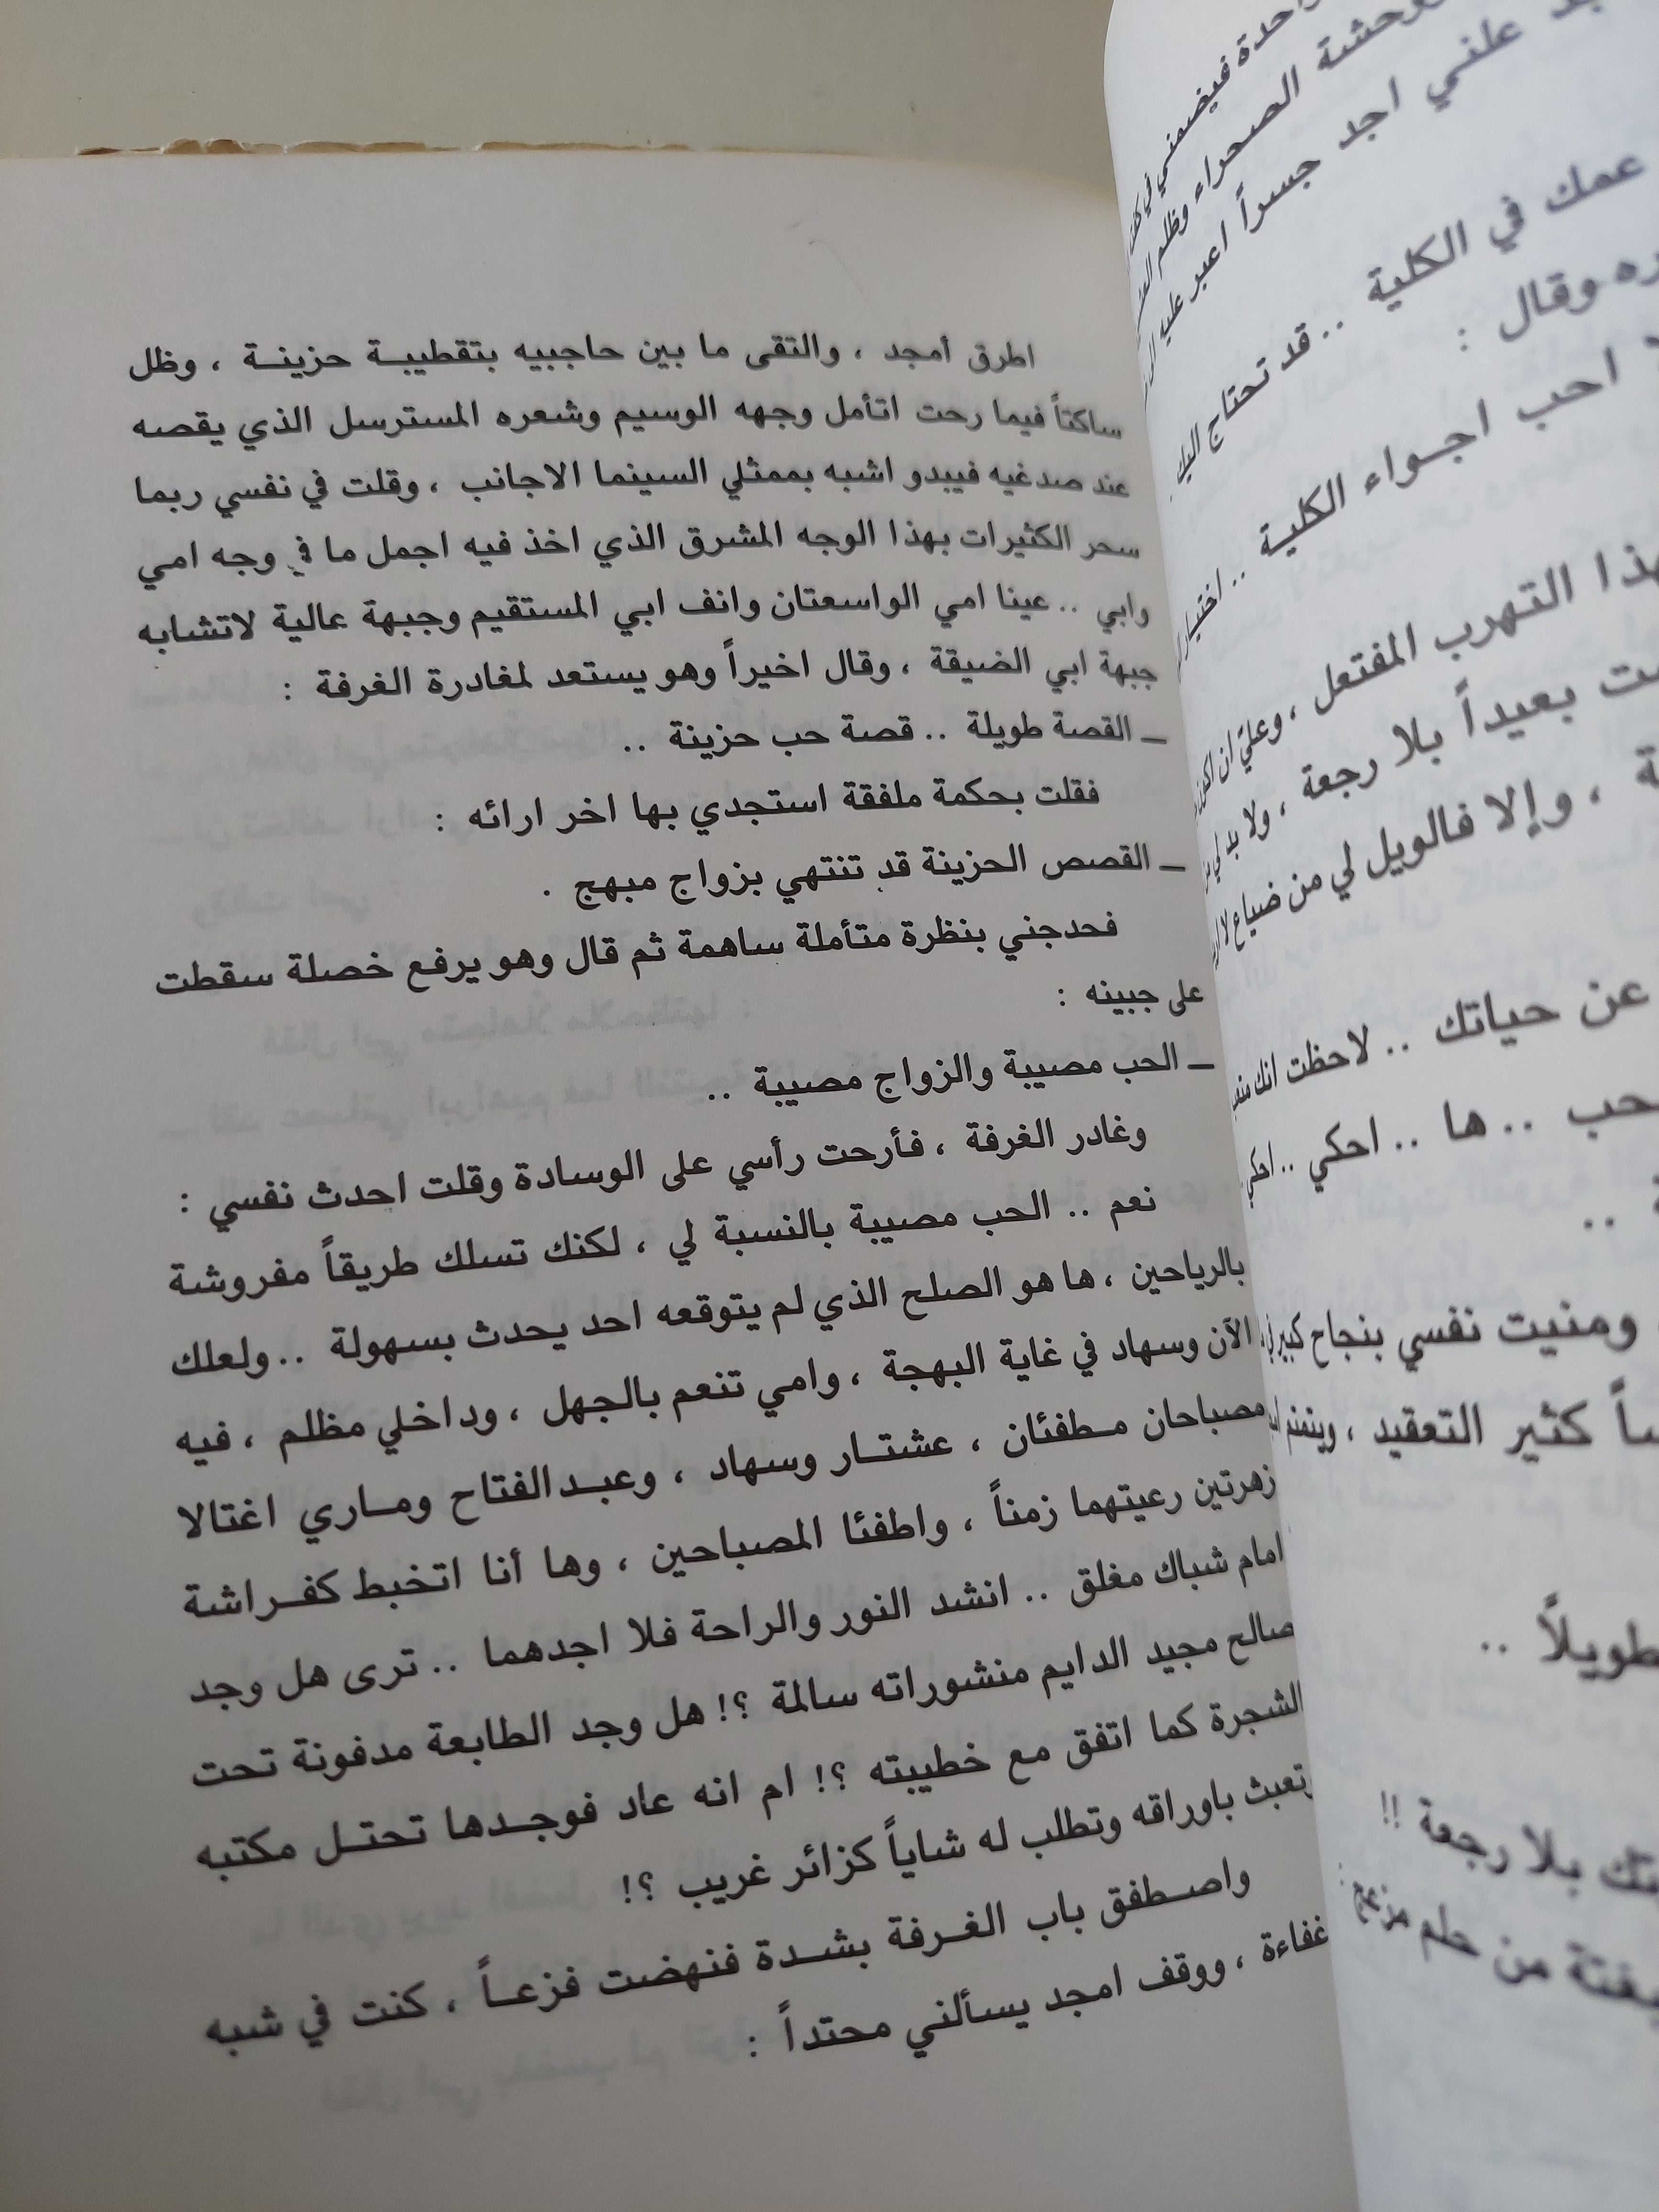 اطرق أمجد ، والتقى ما بين حاجبيه بتقطيبة حزينة ، وظل
ساكتاً فيما رحت اتأمل وجهه الوسيم وشعره المسترسل الذي يقصه
عند صدغيه فيبدو اشبه بممثلي السينما الاجانب ، وقلت في نفسي ربما
سحر الكثيرات بهذا الوجه المشرق الذي اخذ فيه اجمل ما في وجه امي
وابي .. عينا امي الواسعتان وانف ابي المستقيم وجبهة عالية لاتشابه
جبهة ابي الضيقة ، وقال اخيراً وهو يستعد لمغادرة الغرفة :
ـ القصة طويلة .. قصة حب حزينة ..
فقلت بحكمة ملفقة استجدي بها اخر ارائه :
ـ القصص الحزينة قد تنتهي بزواج مبهج .
فحدجني بنظرة متأملة ساهمة ثم قال وهو يرفع خصلة سقطت
على جبينه :
ـ الحب مصيبة والزواج مصيبة ..
وغادر الغرفة ، فأرحت رأسي على الوسادة وقلت احدث نفسي :
نعم .. الحب مصيبة بالنسبة لي ، لكنك تسلك طريقاً مفروشة
بالرياحين ، ها هو الصلح الذي لم يتوقعه احد يحدث بسهولة .. ولعلك
الآن وسهاد في غاية البهجة ، وامي تنعم بالجهل ، وداخلي مظلم ، فيه
مصباحان مطفئان ، عشتار وسهاد ، وعبدالفتاح وماري اغتالا
زهرتين رعيتهما زمناً ، واطفئا المصباحين ، وها أنا اتخبط كفراشة
امام شباك مغلق .. انشد النور والراحة فلا اجدهما .. ترى هل وجد
صالح مجيد الدايم منشوراته سالمة ؟! هل وجد الطابعة مدفونة تحت
الشجرة كما اتفق مع خطيبته ؟! ام انه عاد فوجدها تحتل مكتبه
وتعبث باوراقه وتطلب له شاياً كزائر غريب ؟!
واصطفق باب الغرفة بشدة فنهضت فزعاً ، كنت في شبه
غفاءة ، ووقف امجد يسألني محتداً :
واحدة فيضمني
الصحراء وظلم
علني اجد جسراً اعبر عليه
عمك في الكلية .. قد تحتاج اليك
وقال :
احب اجواء الكلية ..
التهرب المفتعل ، وعليّ ان
بعيداً بلا رجعة ، ولا بد لي
، وإلا فالويل لي من ضياع
عن حياتك .. لاحظت انك
.. ها .. احكي .. احكي
..
ومنيت نفسي بنجاح كبير
كثير التعقيد ،
طويلاً ..
بلا رجعة !!
من حلم مزعج :